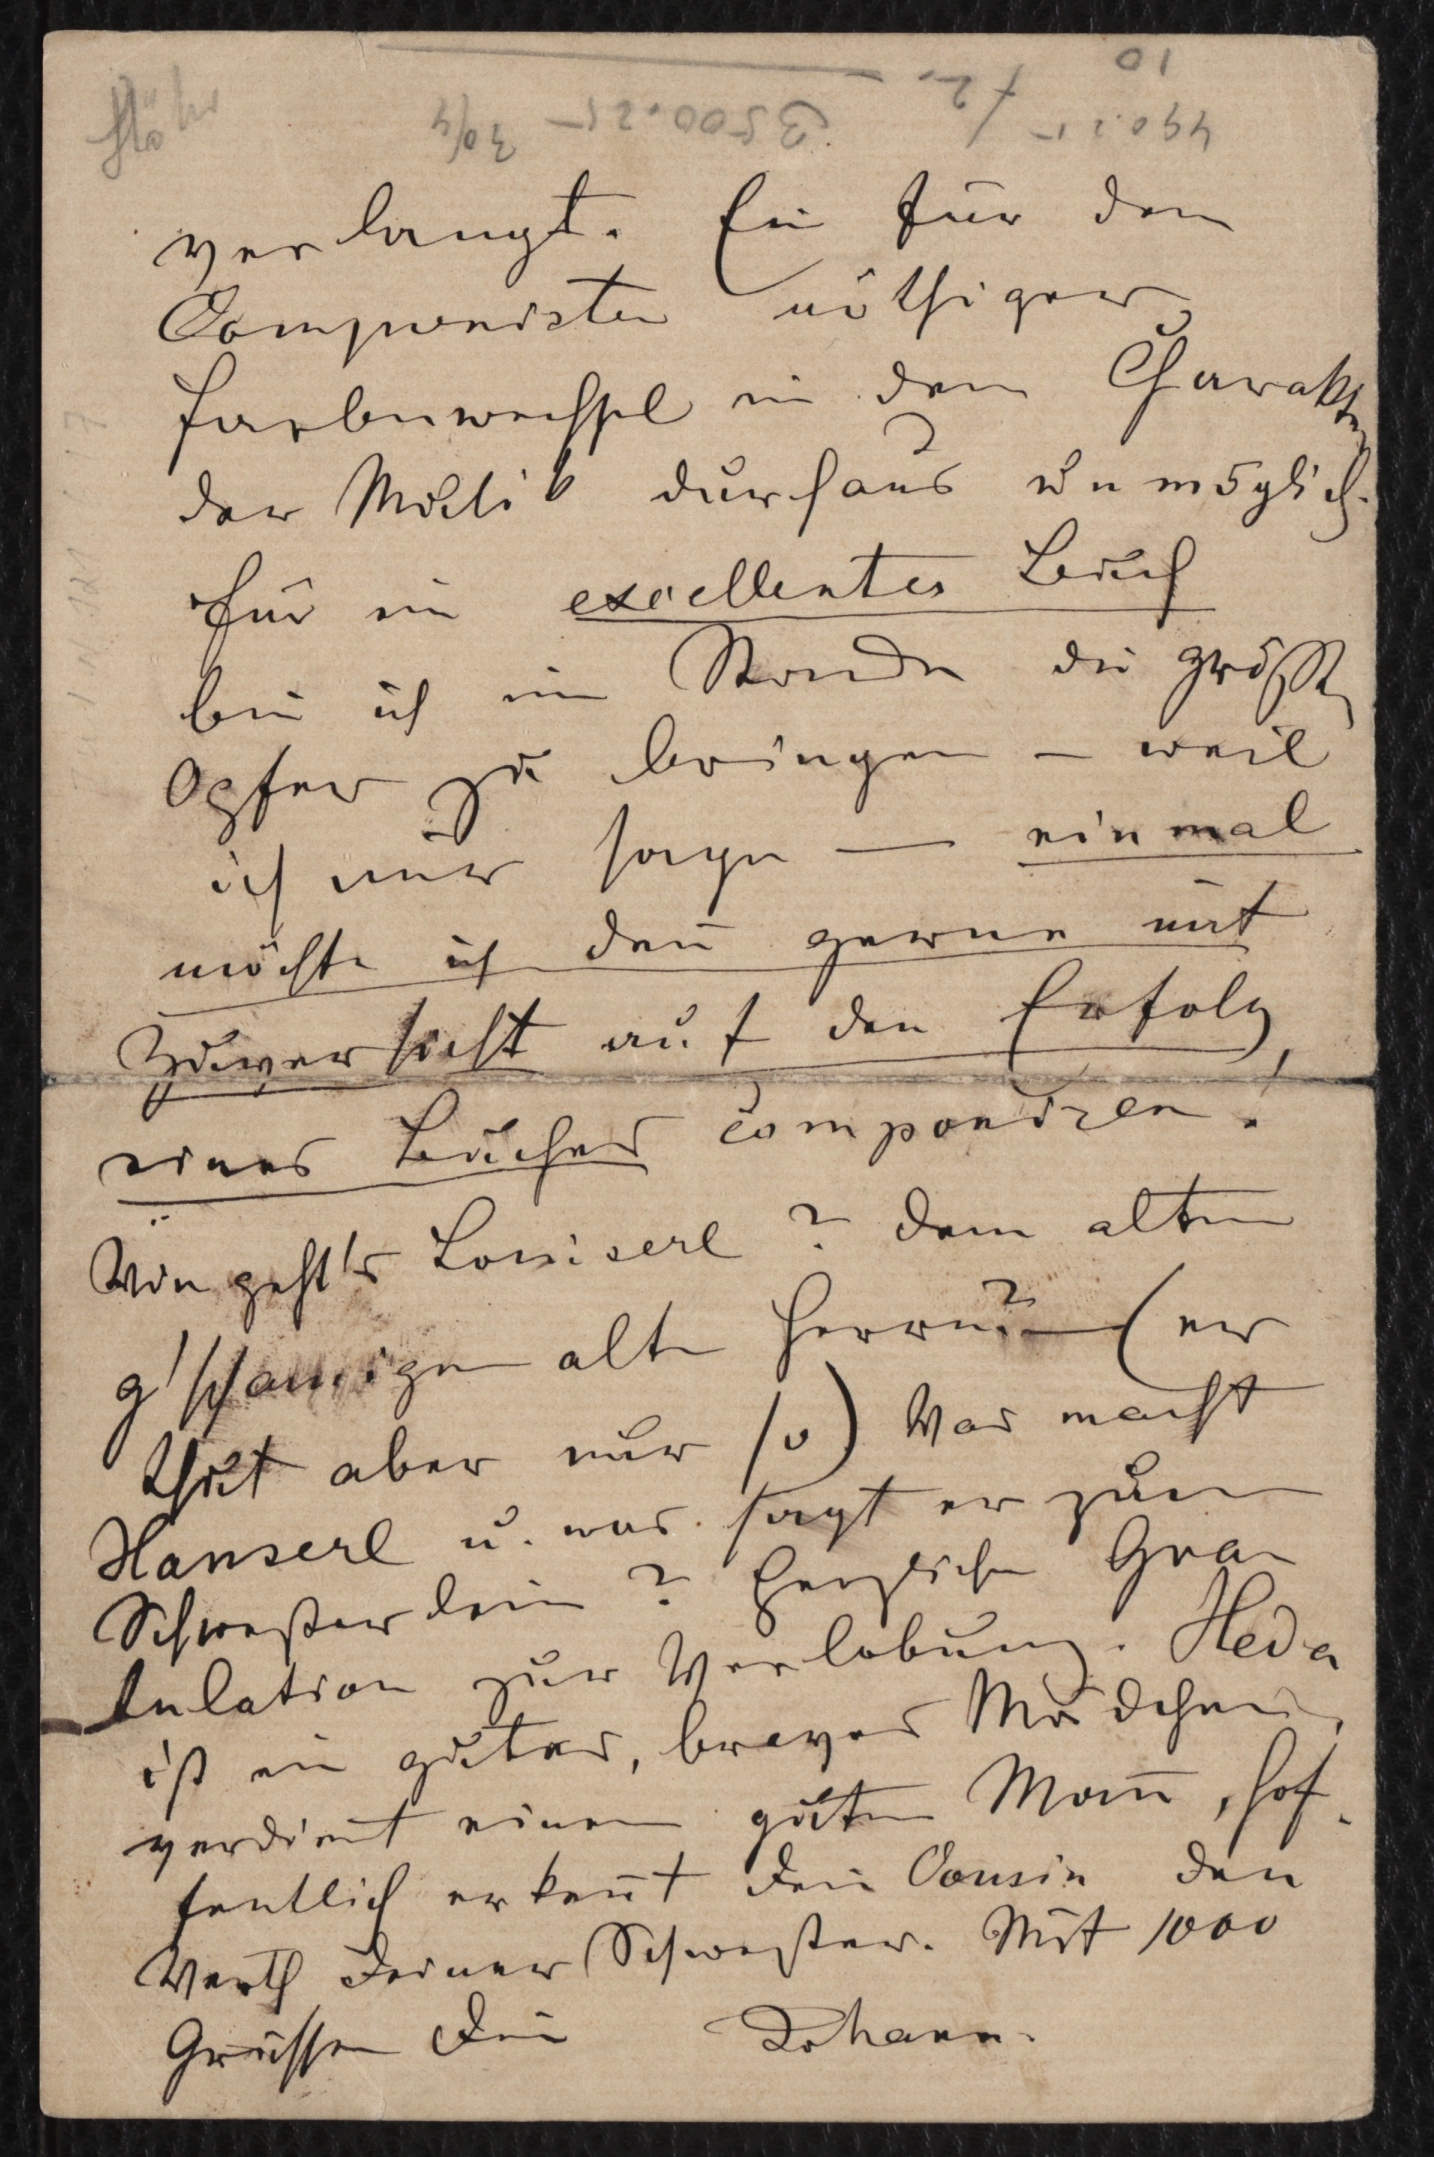 verlangt. Ein für den
Componisten nöthiger
Farbenwechsel in dem Charakter
der Musik durchaus unmöglich.
Für ein excellentes Buch
bin ich im Stande die grösst
Opfer zu bringen – weil
ich mir sage — einmal
möchte ich deñ gerne mit
Zuversicht auf den Erfolg
eines Buches componiren!
Wie geht's Louiserl? dem alten
g'schamigen alten Herrn? — (er
thut aber nur so) Was macht
Hanserl u. was sagt er zum
Schwesterlein? Herzliche Gra-
tulation zur Verlobung. Heda
ist ein gutes, braves Mädchen,
verdient einen guten Mañ, hof-
fentlich erkeñt dein Cousin den
Werth deiner Schwester. Mit 1000
Grüssen Dein Johann.
10
490.25
3500.25